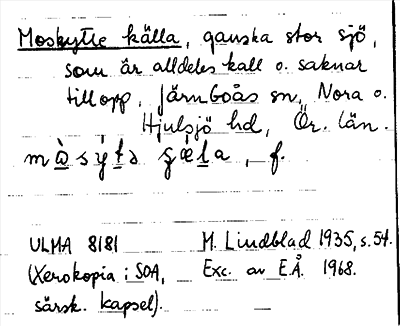 Moskytte källa, ganska stor sjö,
som är alldeles kall o. saknar
tillopp. Järnboås sn, Nora o.
Hjulsjö hd, Ör. län.
f.
ULMA 8181 M. Lindblad 1935, s. 54.
(Xerokopia i SOA, Exc. av E.Å. 1968.
särsk. kapsel).